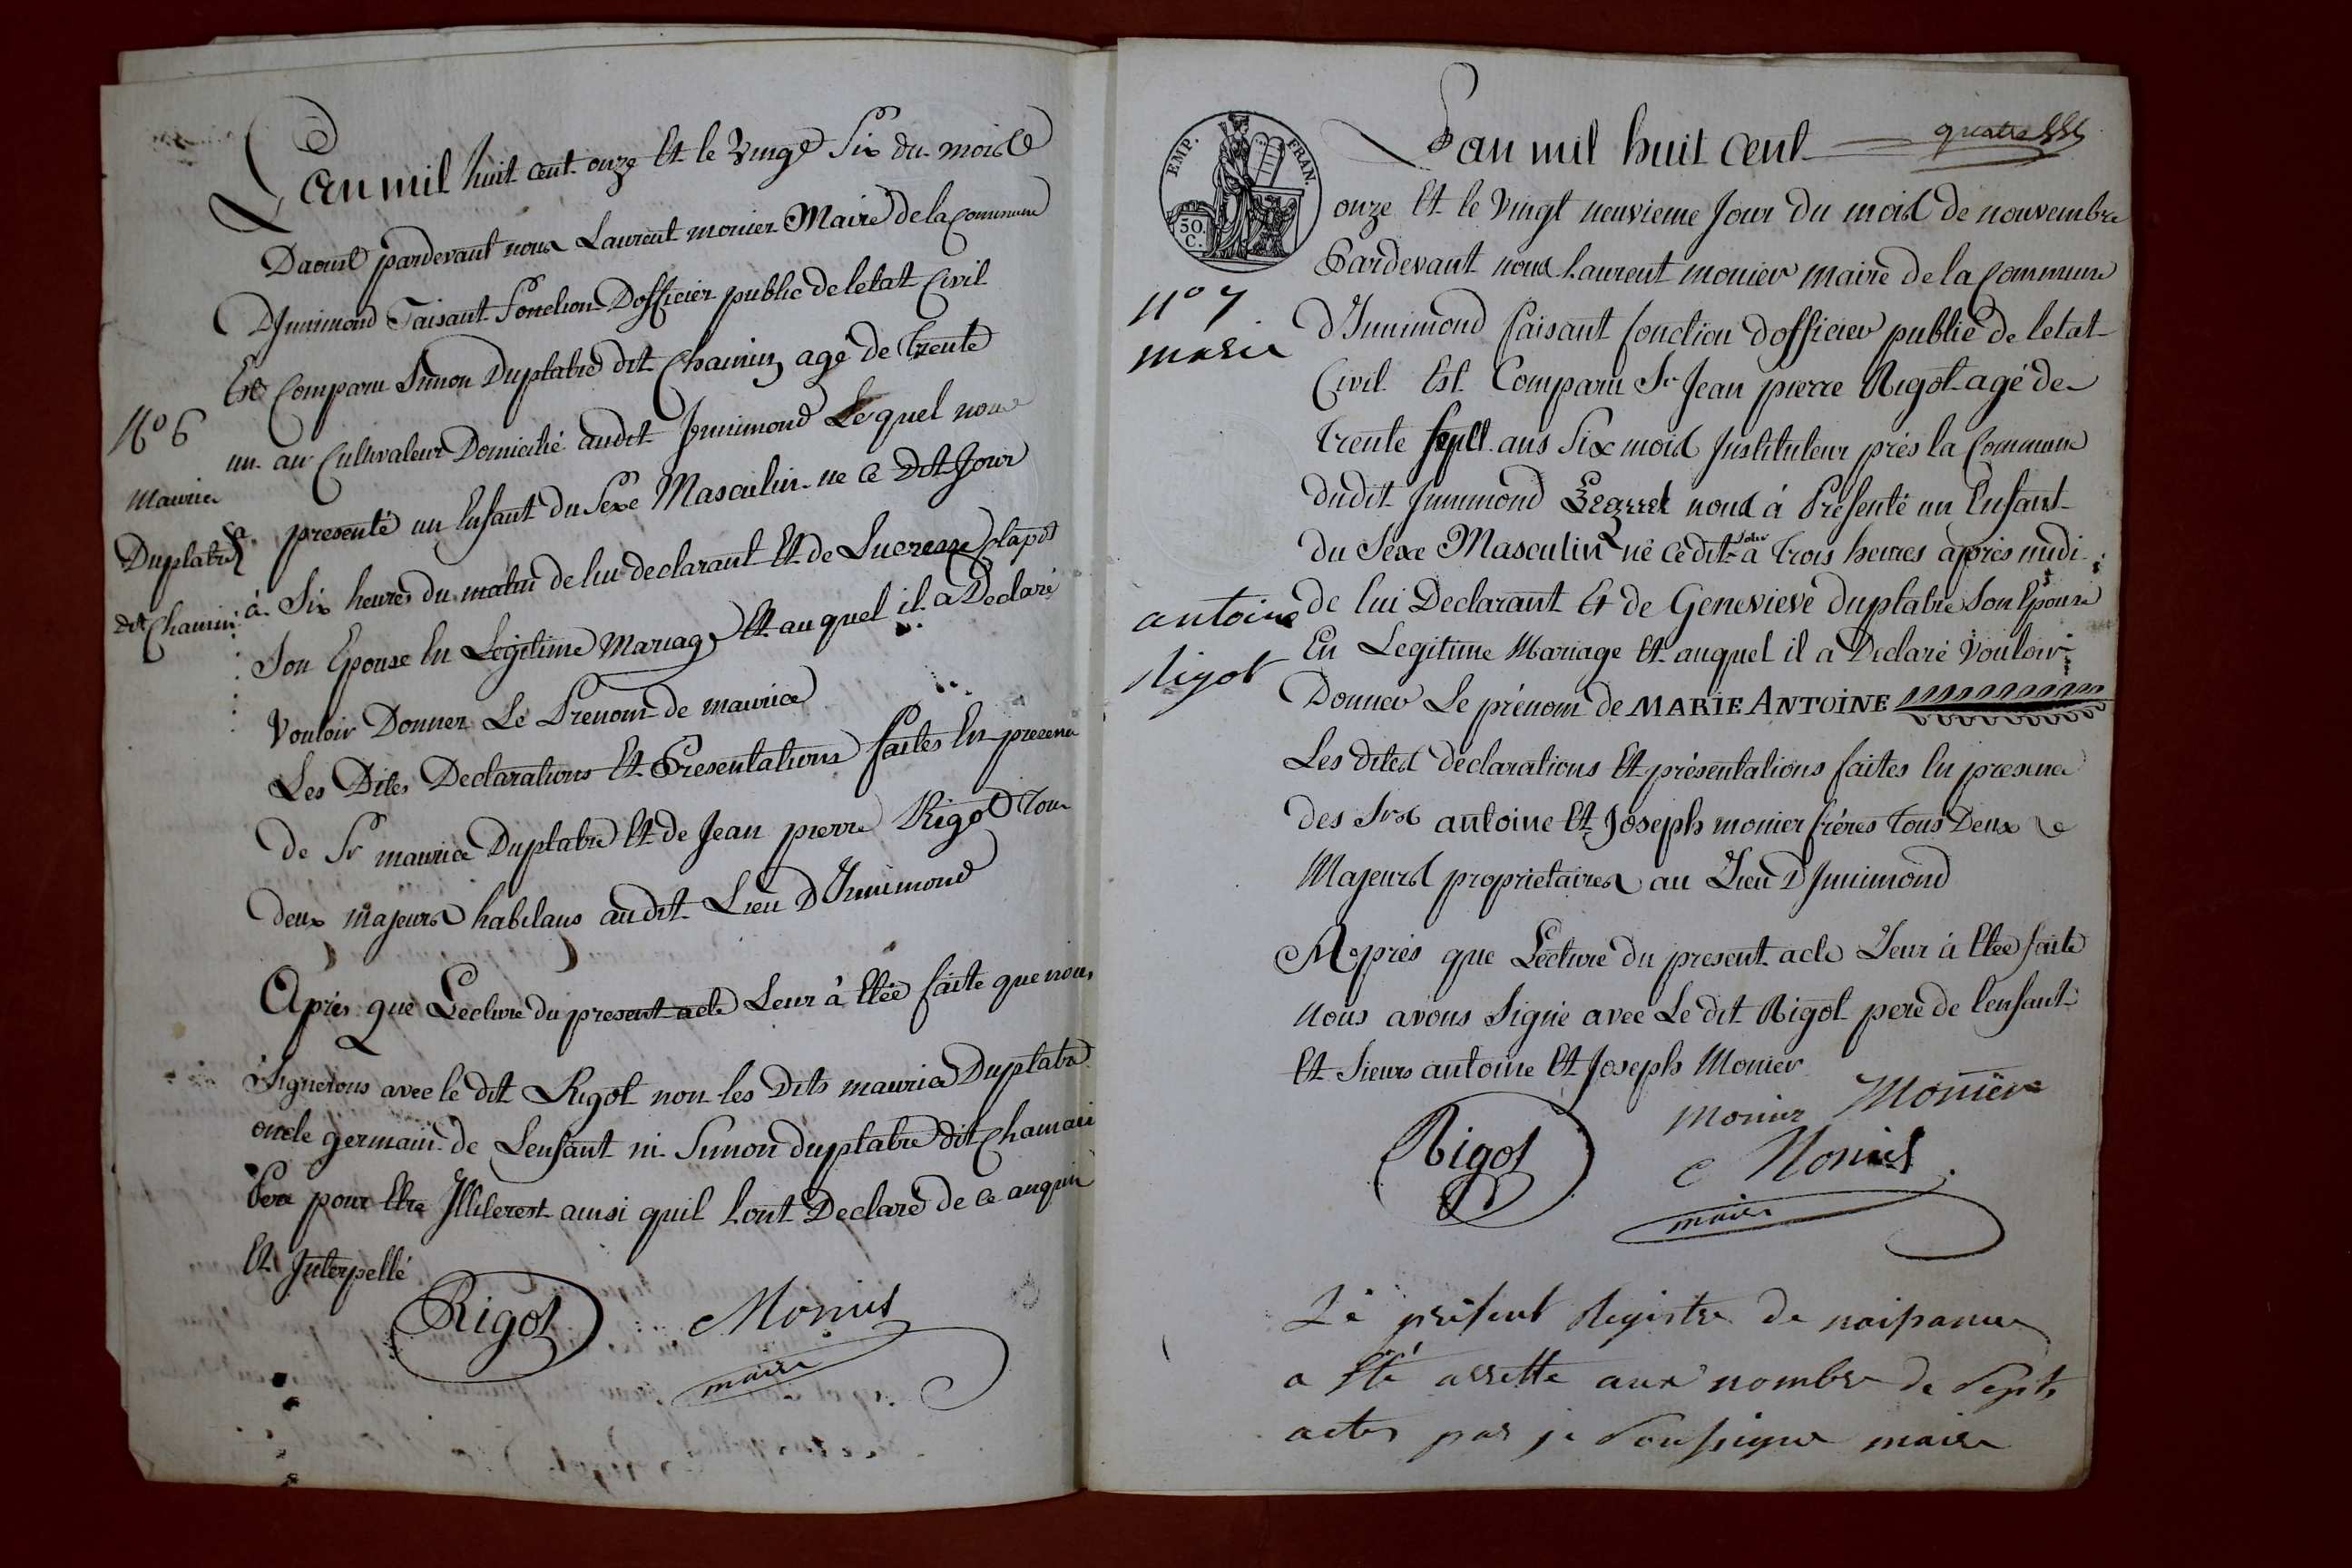 L'an mil huit cent onze Et le Vingt Six du mois
Daoust pardevant nous Laurent monier Maire de la Commune
D'Innimond Faisant Fonction D'officier public de letat Civil
Est Comparu Simon Duplatre dit Chamin agé de Trente
un an Cultivateur Domicilié audit Innimond Lequel nous
N° 6
maurice
Duplatre
dit Chamin
a presenté un Enfant du Sexe Masculin ne ce Dit Jour
à Six heures du matin de lui declarant Et de Lucresse
Son Epouse En Légitime Mariage Et auquel il a Declaré
Vouloir Donner Le Prenom de maurice
Les Dites Declarations Et Presentations faites En presence
de Sr maurice Duplatre Et de Jean pierre Rigot Tous
deux majeurs habitans audit Lieu D'Innimond
Après que Lecture du present acte Leur à Etée faite que nous
Signerons avec le dit Rigot non les Dits maurice Duplatre
oncle germain de Lenfant ni Simon duplatre dit Chamin
Pere pour Etre Illiterest ainsi quil Lont Declaré de ce
Et Interpellé
Rigot Monier
maire
EMP. FRAN.
50.
C.
quatre
L'an mil huit cent
onze Et le Vingt neuvieme Jour du mois de nouvembre
Pardevant nous Laurent monier maire de la Commune
d'Innimond faisant fonction dofficier public de letat
Civil Est Comparu Sr Jean pierre Rigot agé de
Trente Sept ans Six mois Instituteur près la Commune
dudit Innimond Lequel nous à Présenté un Enfant
du Sexe Masculin né ce dit Jour à Trois heures après midi
de lui Declarant Et de Genevieve duplatre Son Epouse
En Legitime Mariage Et auquel il a Declaré Vouloir
Donner Le prénom de MARIE ANTOINE
N° 7
marie
antoine
Rigot
Les dites declarations Et présentations faites En presence
des Srs antoine Et Joseph monier frères Tous Deux
Majeurs proprietaires au Lieu D'Innimond
Après que Lecture du present acte Leur à Etée faite
Nous avons Signé avec Le dit Rigot pere de lenfant
Et Sieurs antoine Et Joseph Monier
monier Monier
Rigot Monier
maire
Le présent Registre de naissance
a été arretté aux nombre de Septs
actes par je Soussigne maire